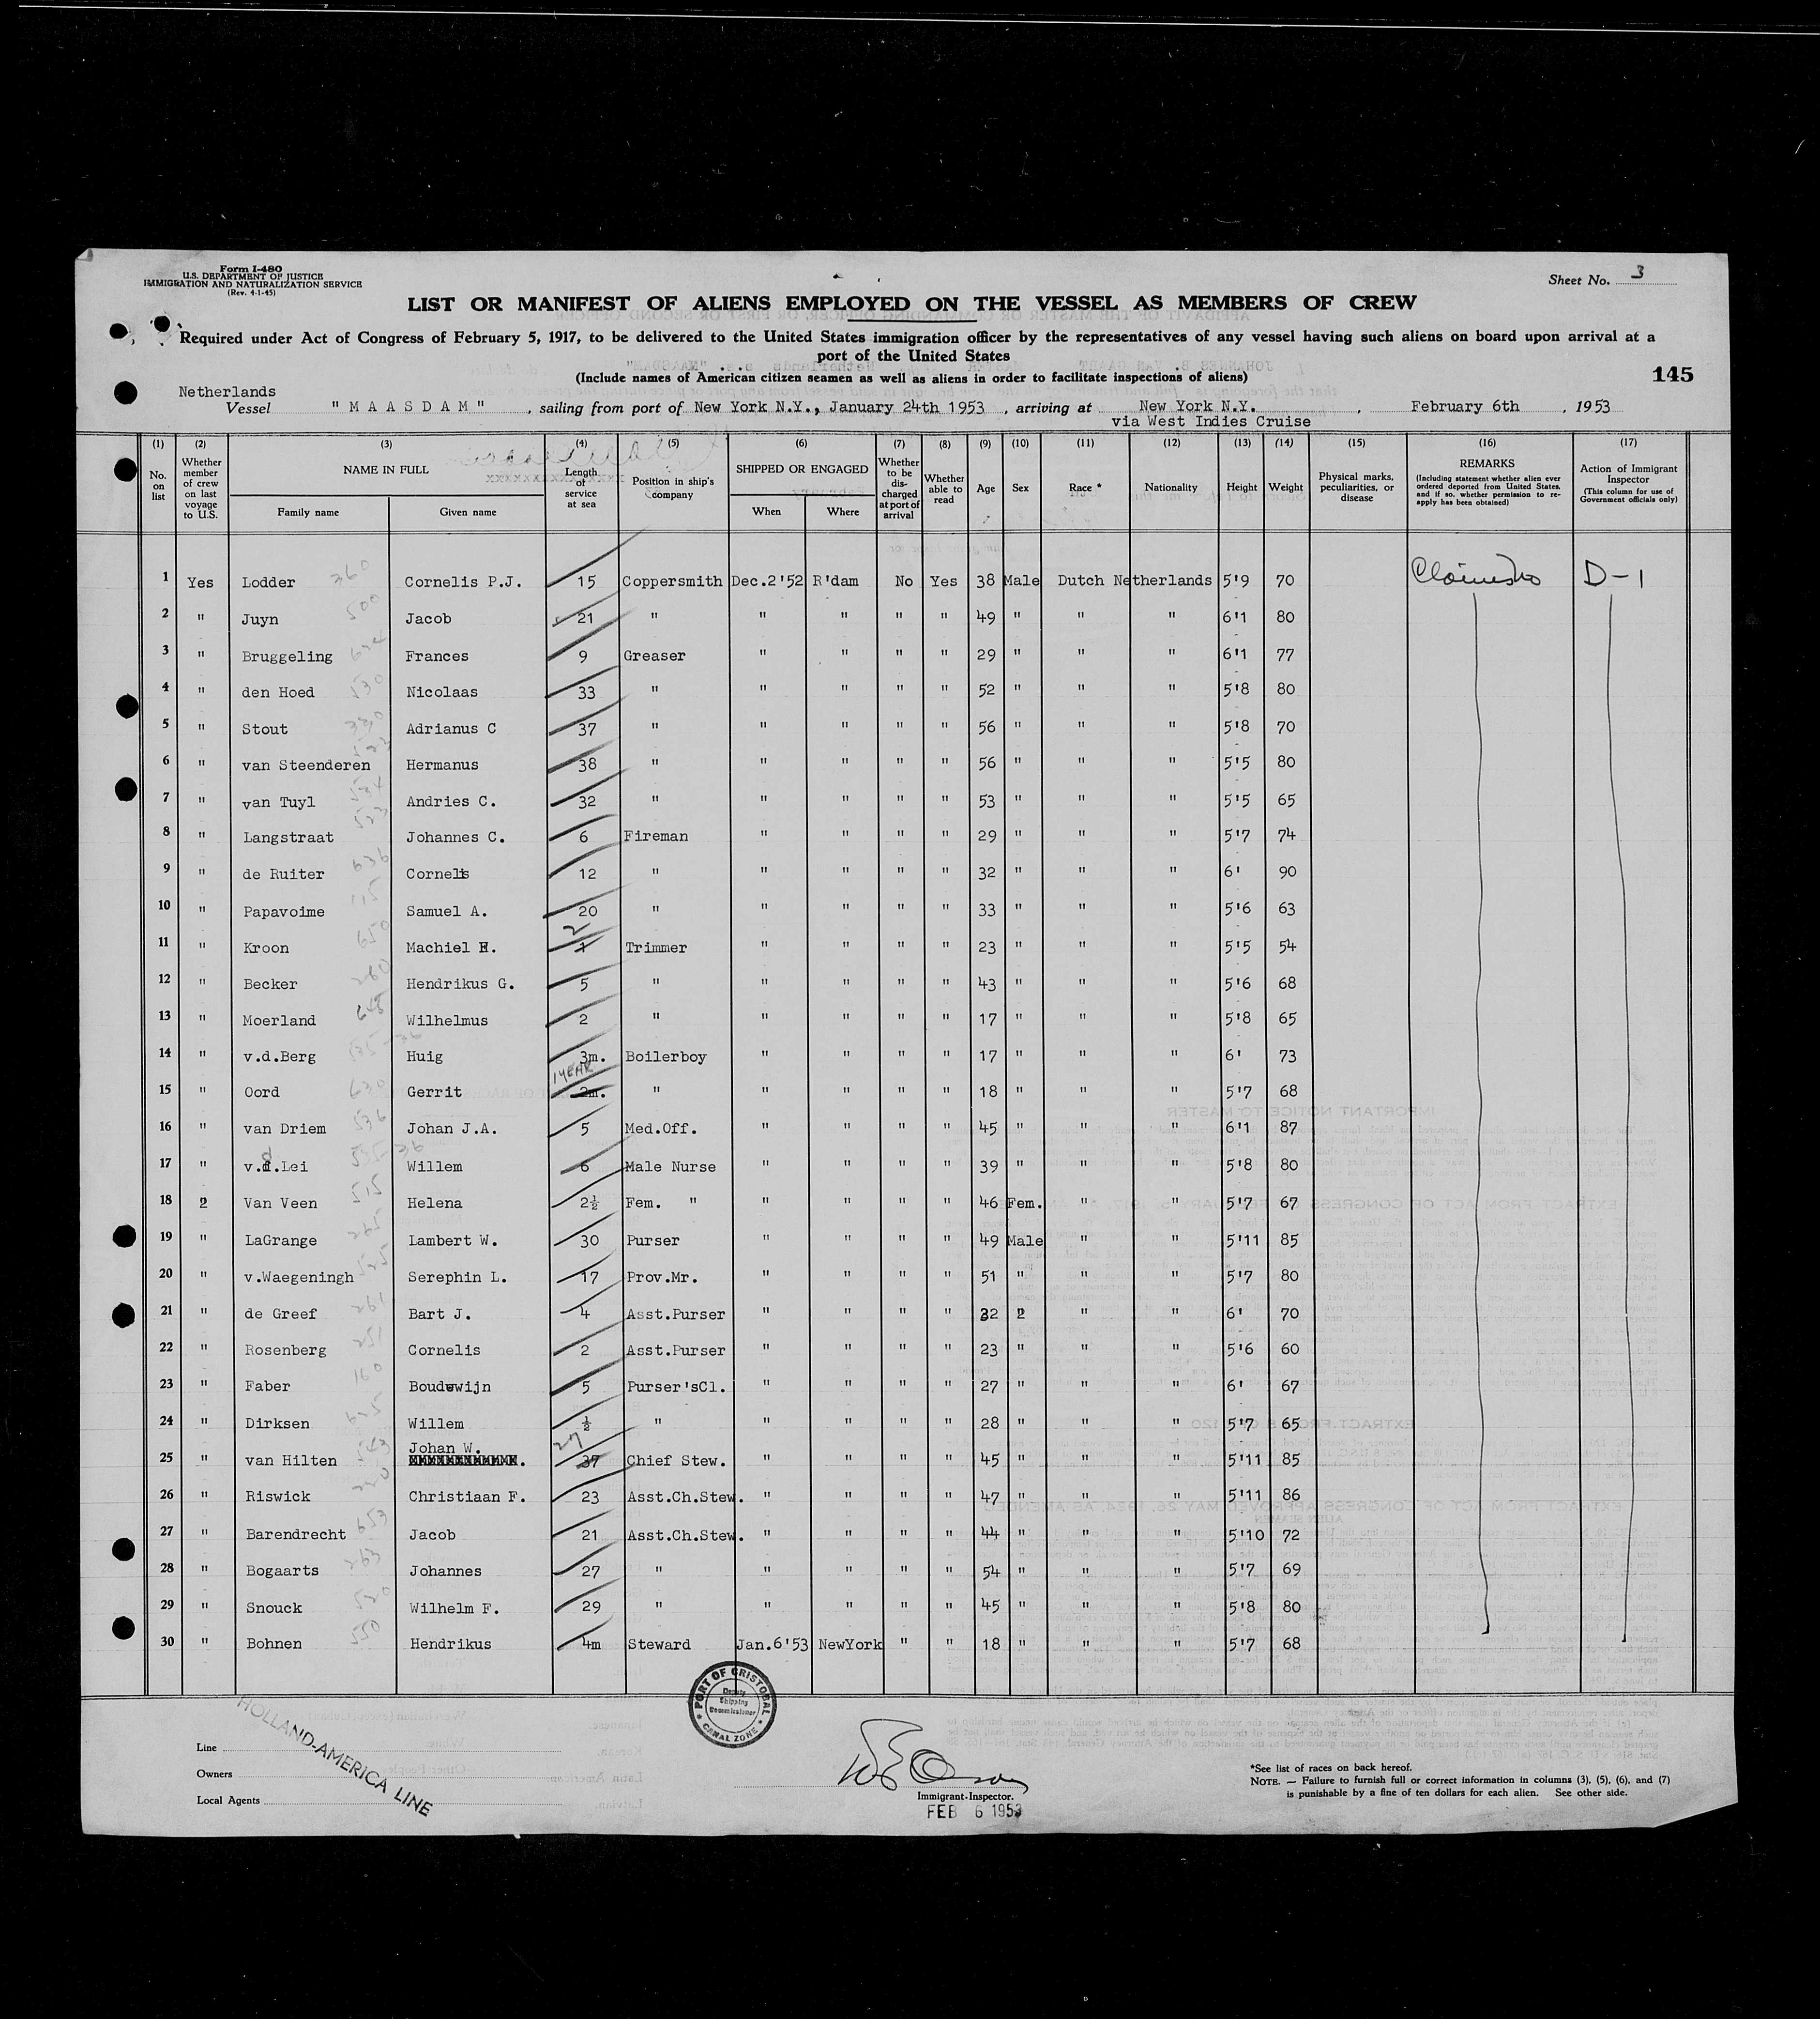 Form I-480
U.S. DEPARTMENT OF JUSTICE
IMMIGRATION AND NATURALIZATION SERVICE
(Rev. 4-1-45)
Sheet No. 3
LIST OR MANIFEST OF ALIENS EMPLOYED ON THE VESSEL AS MEMBERS OF CREW
Required under Act of Congress of February 5, 1917, to be delivered to the United States immigration officer by the representatives of any vessel having such aliens on board upon arrival at a
port of the United States
(Include names of American citizen seamen as well as aliens in order to facilitate inspections of aliens)
145
Netherlands
Vessel "MAASDAM", sailing from port of New York N.Y., January 24th 1953, arriving at New York N.Y., February 6th, 1953
via West Indies Cruise
(1) (2) (3) (4) (5) (6) (7) (8) (9) (10) (11) (12) (13) (14) (15) (16) (17)
No. on list
Whether member of crew on last voyage to U.S.
NAME IN FULL
Family name
Given name
Length of service at sea
Position in ship's company
SHIPPED OR ENGAGED
When
Where
Whether to be discharged at port of arrival
Whether able to read
Age
Sex
Race *
Nationality
Height
Weight
Physical marks, peculiarities, or disease
REMARKS
(Including statement whether alien ever ordered deported from United States, and if so, whether permission to re-apply has been obtained)
Action of Immigrant Inspector
(This column for use of Government officials only)
1 Yes Lodder 360 Cornelis P.J. 15 Coppersmith Dec.2'52 R'dam No Yes 38 Male Dutch Netherlands 5'9 70 D-1
2 " Juyn 500 Jacob 21 " " " " " 49 " " " 6'1 80
3 " Bruggeling Frances 9 Greaser " " " " 29 " " " 6'1 77
4 " den Hoed 530 Nicolaas 33 " " " " " 52 " " " 5'8 80
5 " Stout Adrianus C 37 " " " " " 56 " " " 5'8 70
6 " van Steenderen Hermanus 38 " " " " " 56 " " " 5'5 80
7 " van Tuyl Andries C. 32 " " " " " 53 " " " 5'5 65
8 " Langstraat Johannes C. 6 Fireman " " " " 29 " " " 5'7 74
9 " de Ruiter 636 Cornelis 12 " " " " " 32 " " " 6' 90
10 " Papavoime Samuel A. 20 " " " " " 33 " " " 5'6 63
11 " Kroon 650 Machiel H. 1 2 Trimmer " " " " 23 " " " 5'5 54
12 " Becker 260 Hendrikus G. 5 " " " " " 43 " " " 5'6 68
13 " Moerland Wilhelmus 2 " " " " " 17 " " " 5'8 65
14 " v.d.Berg Huig 3m. Boilerboy " " " " 17 " " " 6' 73
15 " Oord 630 Gerrit 2m. 1 YEAR " " " " " 18 " " " 5'7 68
16 " van Driem 536 Johan J.A. 5 Med.Off. " " " " 45 " " " 6'1 87
17 " v.d.Lei Willem 6 Male Nurse " " " " 39 " " " 5'8 80
18 2 Van Veen 515 Helena 2½ Fem. " " " " " 46 Fem. " " 5'7 67
19 " LaGrange Lambert W. 30 Purser " " " " 49 Male " " 5'11 85
20 " v.Waegeningh Serephin L. 17 Prov.Mr. " " " " 51 " " " 5'7 80
21 " de Greef 261 Bart J. 4 Asst.Purser " " " " 32 2 " " 6' 70
22 " Rosenberg 251 Cornelis 2 Asst.Purser " " " " 23 " " " 5'6 60
23 " Faber 160 Boudewijn 5 Purser'sCl. " " " " 27 " " " 6' 67
24 " Dirksen Willem ½ " " " " " 28 " " " 5'7 65
25 " van Hilten Johan W. 37 27 Chief Stew. " " " " 45 " " " 5'11 85
26 " Riswick Christiaan F. 23 Asst.Ch.Stew. " " " " 47 " " " 5'11 86
27 " Barendrecht 653 Jacob 21 Asst.Ch.Stew. " " " " 44 " " " 5'10 72
28 " Bogaarts 263 Johannes 27 " " " " " 54 " " " 5'7 69
29 " Snouck 520 Wilhelm F. 29 " " " " " 45 " " " 5'8 80
30 " Bohnen 550 Hendrikus 4m Steward Jan.6'53 NewYork " " 18 " " " 5'7 68
PORT OF CRISTOBAL
Deputy Shipping Commissioner
CANAL ZONE
Line
Owners
Local Agents
HOLLAND-AMERICA LINE
Immigrant Inspector.
FEB 6 1953
*See list of races on back hereof.
NOTE. — Failure to furnish full or correct information in columns (3), (5), (6), and (7)
is punishable by a fine of ten dollars for each alien. See other side.